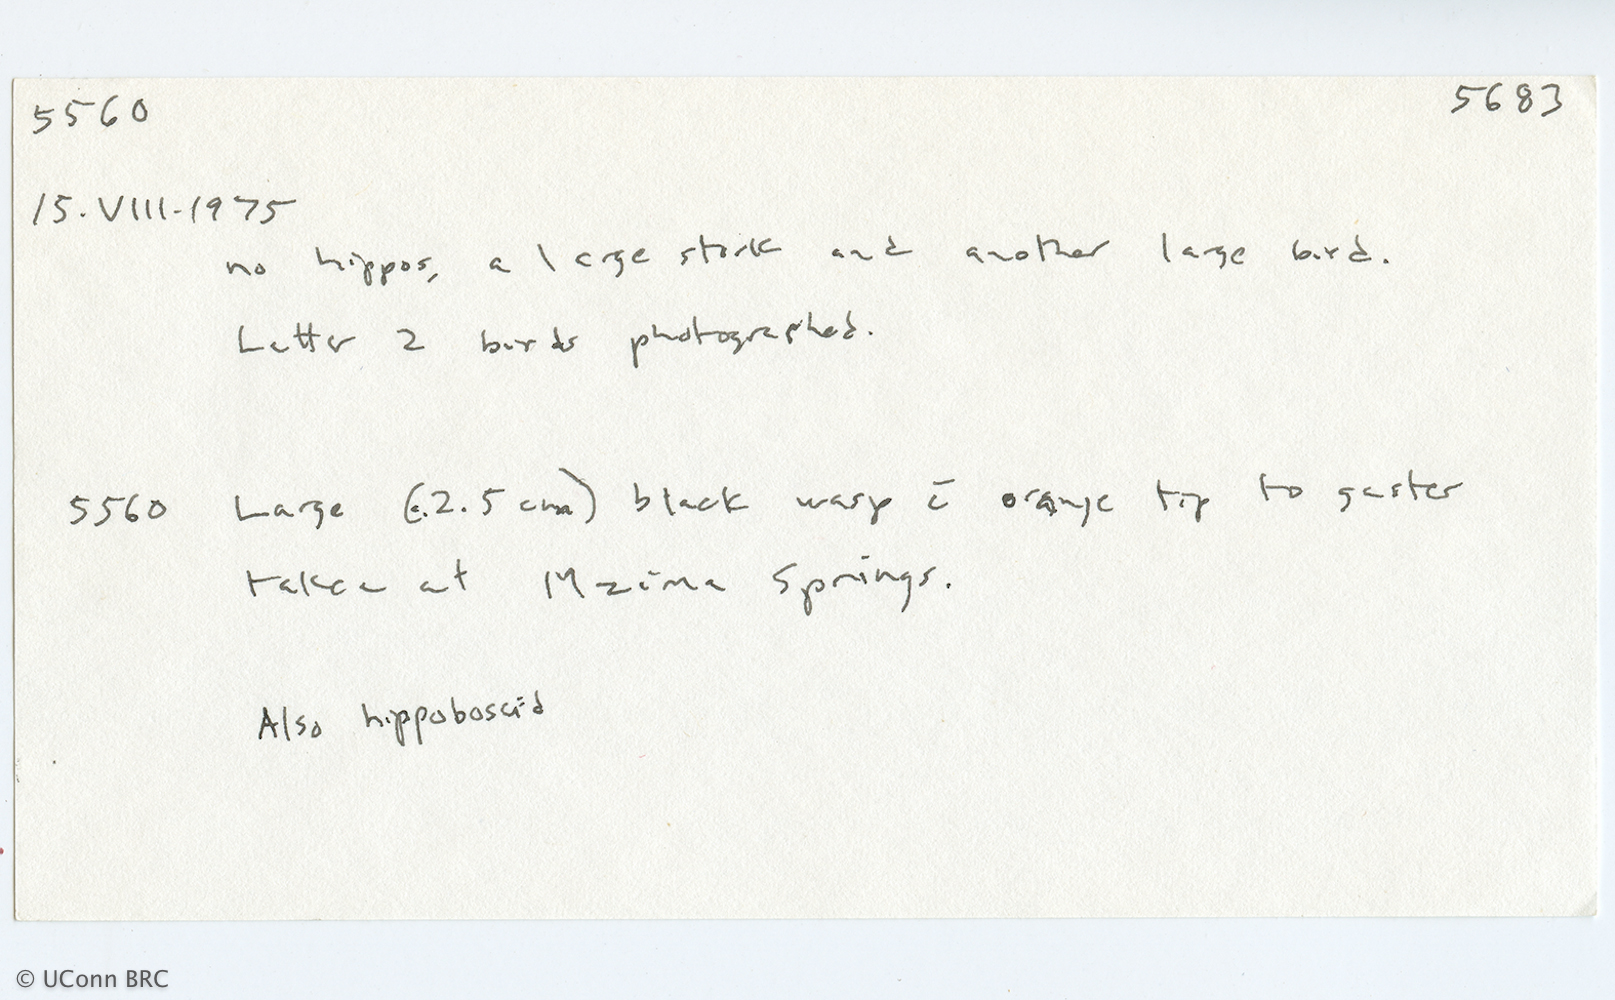 5560 5683
15.VIII-1975
no hippos, a large stork and another large bird.
Latter 2 birds photographed.
5560 Large (c.2.5 cm) black wasp c̄ orange tip to gaster
taken at Mzima Springs.
Also hippoboscid
© UConn BRC